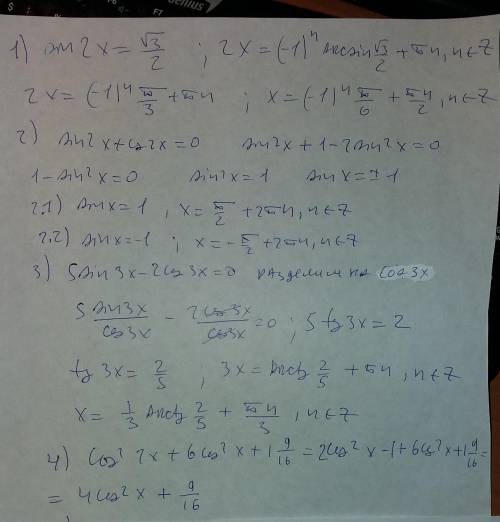 1) sin 2x = √3/2 ; 2x = (-1)^n arcsin √3/2 + πn, n∈Z
2x = (-1)^n π/3 + πn ; x = (-1)^n π/6 + πn/2, n∈Z
2) sin²x + cos2x = 0 sin²x + 1 - 2sin²x = 0
1 - sin²x = 0 sin²x = 1 sinx = ± 1
2.1) sinx = 1 , x = π/2 + 2πn, n∈Z
2.2) sinx = -1 ; x = -π/2 + 2πn, n∈Z
3) 5sin3x - 2cos3x = 0 разделим на cos3x
5 sin3x/cos3x - 2cos3x/cos3x = 0 ; 5 tg 3x = 2
tg 3x = 2/5 ; 3x = arctg 2/5 + πn, n∈Z
x = 1/3 arctg 2/5 + πn/3, n∈Z
4) cos² 2x + 6cos²x + 1 9/16 = 2cos²x - 1 + 6cos²x + 1 9/16 =
= 4cos²x + 9/16